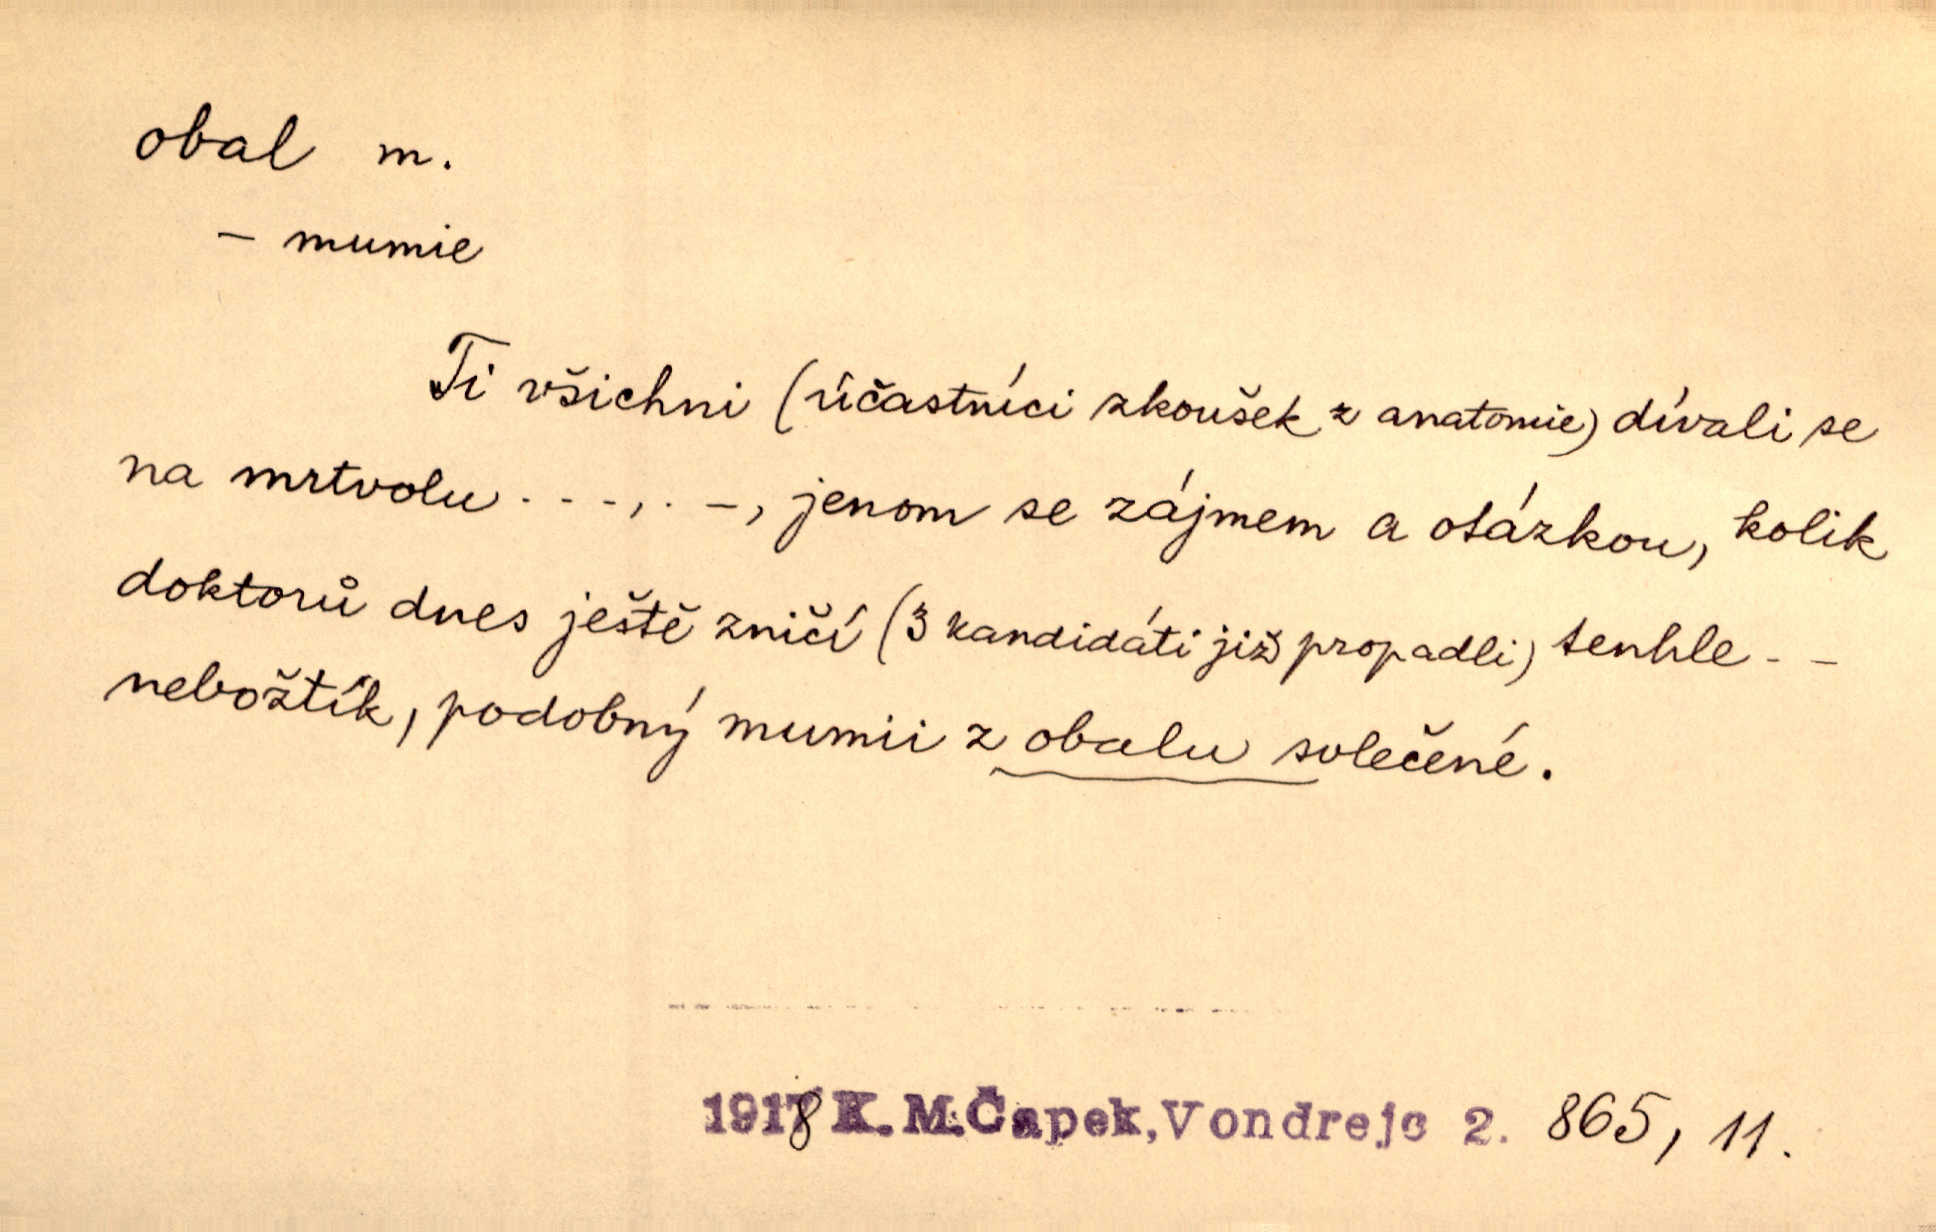 obal m.
– mumie
Ti všichni (účastníci zkoušek z anatomie) dívali se
na mrtvolu - - -, . –, jenom se zájmem a otázkou, kolik
doktorů dnes ještě zničí (3 kandidáti již propadli) tenhle - –
nebožtík, podobný mumii z obalu svlečené.
1918 K. M. Čapek, Vondrejc 2. 865, 11.